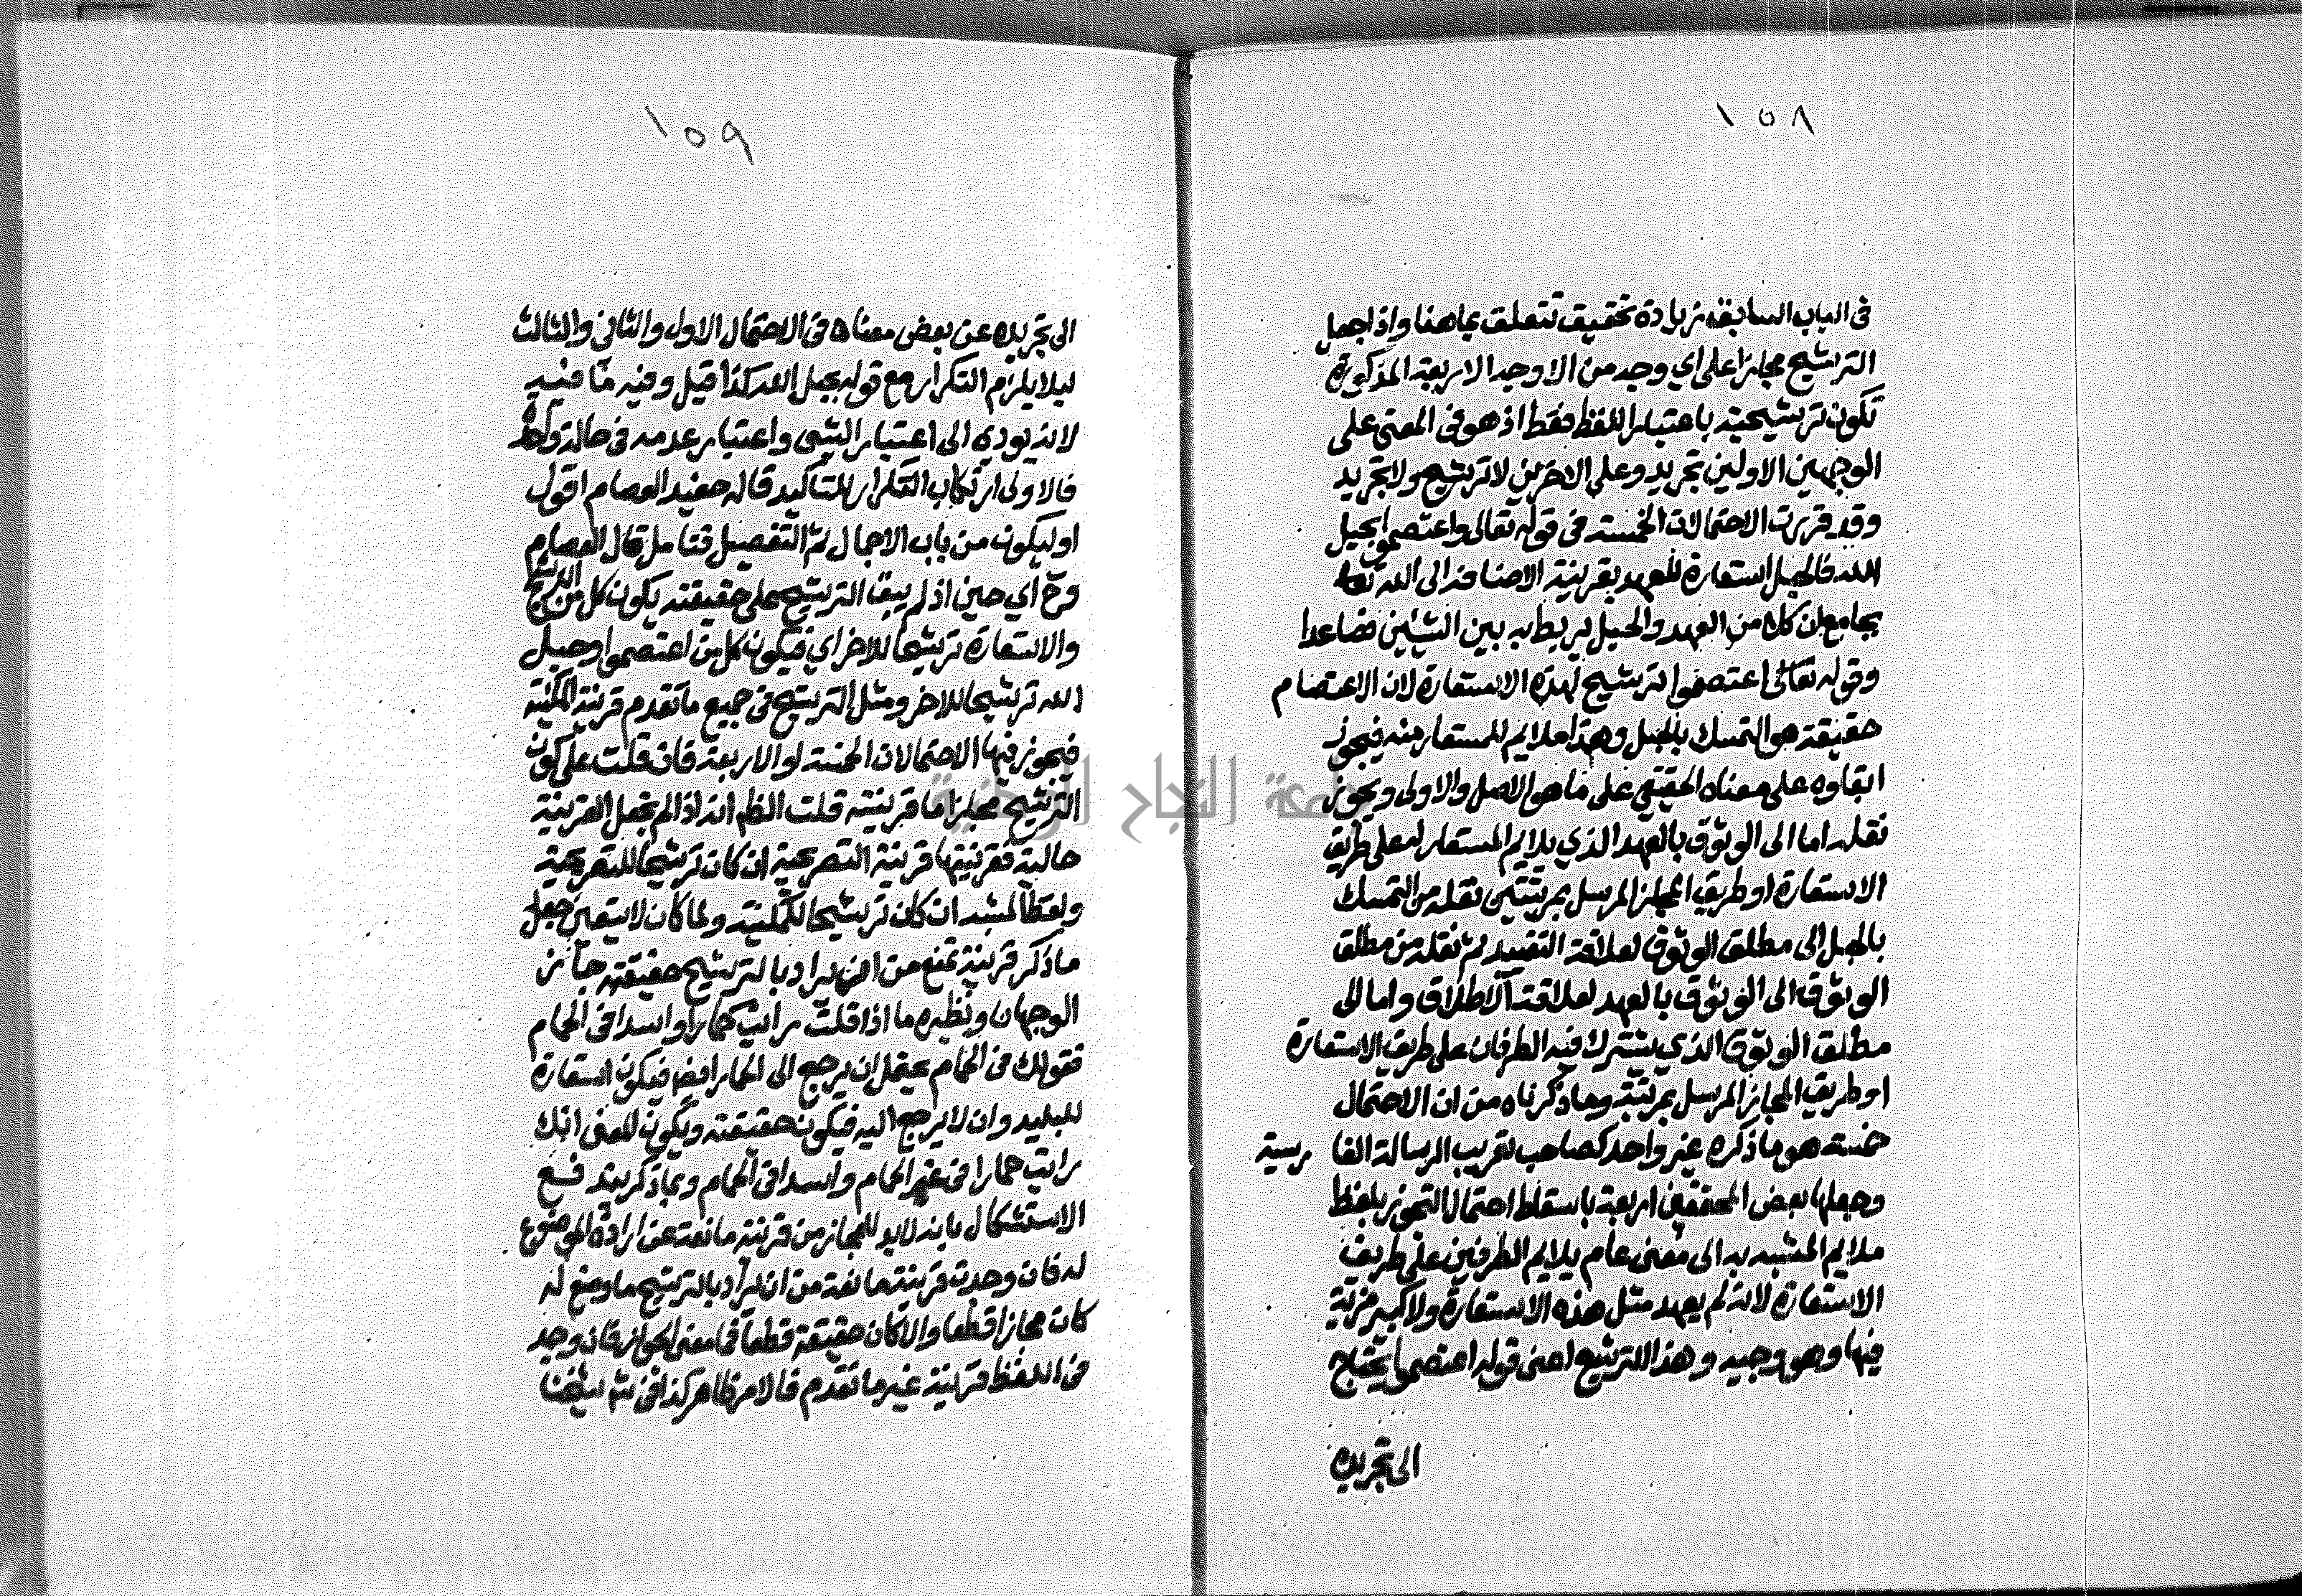 ١٥٨
في الباب السابقه زيادة تحقيق تتعلق بما هنا واذا جعل
الترشيح مجازا على اي وجه من الاوجه الاربعة المذكورة
تكون ترشيحيته باعتبار اللفظ فقط اذ هو في المعنى على
الوجهين الاولين تجريد وعلى الاخرين لا ترشيح ولا تجريد
وقد قررت الاحتمالات الخمسة في قوله تعالى واعتصموا بحبل
الله فالحبل استعارة للعهد بقرينة الاضافة الى الله تعا
بجامع ان كلا من العهد والحبل يربط به بين الشيئين فصاعدا
وقوله تعالى اعتصموا ترشيح لهذه الاستعارة لان الاعتصام
حقيقة هو التمسك بالحبل وهذا ملايم للمستعار منه فيجوز
ابقاوه على معناه الحقيقي على ما هو الاصل والاولى ويجوز
نقله اما الى الوثوق بالعهد الذي يلايم المستعار له على طريق
الاستعارة او طريق المجاز المرسل بمرتبتين نقله من التمسك
بالحبل الى مطلق الوثوق لعلاقة التقييد ثم نقله من مطلق
الوثوق الى الوثوق بالعهد لعلاقة الاطلاق واما الى
مطلق الوثوق الذي يشترك فيه الطرفان على طريق الاستعارة
او طريق المجاز المرسل بمرتبة وما ذكرناه من ان الاحتمال
خمسة هو ما ذكره غير واحد كصاحب تقريب الرسالة الفا رسية
وجعلها بعض المحققين اربعة باسقاط احتمال التجوز بلفظ
ملايم المشبه به الى معنى عام يلايم الطرفين على طريق
الاستعارة لانه لم يعهد مثل هذه الاستعارة ولا كبير مزية
فيها وهو وجيه وهذا الترشيح اعني قوله اعتصموا يحتاج
الى تجريده
١٥٩
الى تجريده عن بعض معناه في الاحتمال الاول والثاني والثالث
ليلا يلزم التكرار مع قوله بحبل الله كذا قيل وفيه ما فيه
لانه يودي الى اعتبار الشي واعتبار عدمه في حالة واحدة
فالاولى ارتكاب التكرار للتاكيد قاله حفيد العصام اقول
او ليكون من باب الاجمال ثم التفصيل فتامل قال العصام
وح اي حين اذ لم يبق الترشيح على حقيقته يكون كل من الترشيح
والاستعارة ترشيحا للاخر اي فيكون كل من اعتصموا وحبل
الله ترشيحا للاخر ومثل الترشيح في جميع ما تقدم قرينة المكنية
فيجوز فيها الاحتمالات الخمسة او الاربعة فان قلت على كون
الترشيح مجازا ما قرينته قلت الظاهر انه اذا لم تجعل القرينة
حالية فقرينتها قرينة التصريحية ان كان ترشيحا للتصريحية
ولفظ المشبه ان كان ترشيحا للمكنية ولما كان لا يتعين جعل
ما ذكر قرينة تمنع من ان يراد بالترشيح حقيقته جاز
الوجهان ونظيره ما اذا قلت رايت حمارا واسدا في الحمام
فقولك في الحمام يحتمل ان يرجع الى الحمار ايضا فيكون استعارة
للبليد وان لا يرجع اليه فيكون حقيقته ويكون المعنى انك
رايت حمارا في غير الحمام واسدا في الحمام وبما ذكر يندفع
الاستشكال بانه لابد للمجاز من قرينة مانعة عن ارادة الموضوع
له فان وجدت قرينة مانعة من ان يراد بالترشيح ما وضع له
كان مجازا قطعا والا كان حقيقة قطعا فما معنى الجواز فان وجد
في اللفظ قرينة غير ما تقدم فالامر ظاهر كذا في شرح شيخنا
جامعة النجاح الوطنية